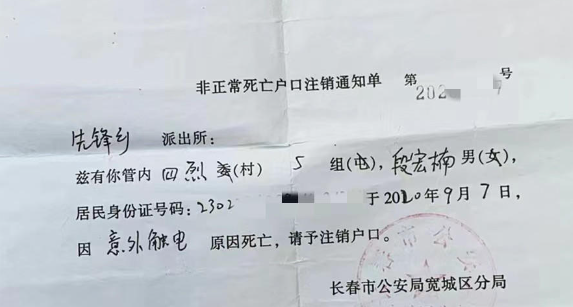 非正常死亡户口注销通知单 第202 7号
先锋乡 派出所：
兹有你管内 四烈 委(村) 5 组(屯)，段宏楠 男(女)，
居民身份证号码：2302 于2020年9月7日，
因 意外触电 原因死亡，请予注销户口。
长春市公安局宽城区分局